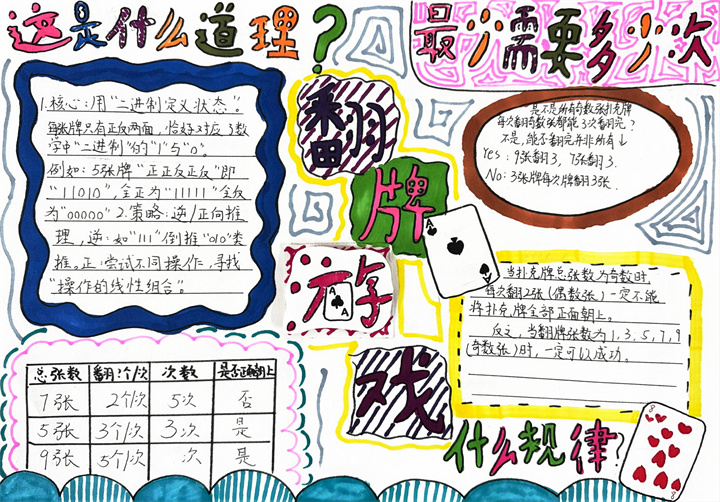 这是什么道理?
最少需要多少次
1.核心:用"二进制定义状态"。
每张牌只有正反两面,恰好对应了数
学中"二进制"的"1"与"0"。
例如:5张牌"正正反正反"即
"11010",全正为"11111"全反
为"00000"2.策略:逆/正向推
理,逆:如"111"倒推"010"类
推。正:尝试不同操作,寻找
"操作的线性组合"。
翻
牌
游
戏
A
A
A
A
是不是所有奇数张扑克牌
每次翻奇数张都能3次翻完?
不是,能否翻完并非所有↓
Yes:9张翻3,7张翻3.
No:3张牌每次牌翻3张.
当扑克牌总张数为奇数时,
每次翻2张(偶数张)一定不能
将扑克牌全部正面朝上。
反之,当翻牌张数为1,3,5,7,9
(奇数张)时,一定可以成功。
总张数 翻?个/次 次数 是否正面朝上
7张 2个/次 5次 否
5张 3个/次 3次 是
9张 5个/次 次 是
什么规律?